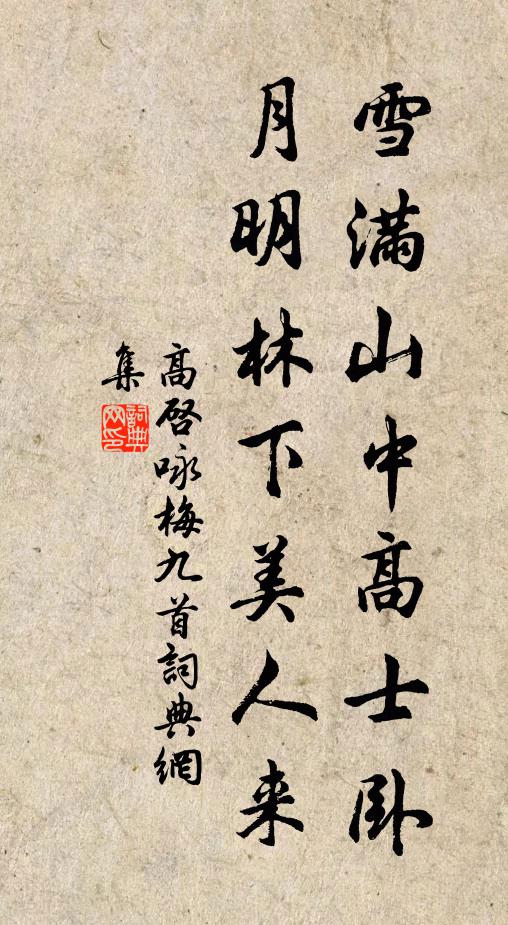 雪滿山中高士卧
月明林下美人来
高啓咏梅九首詞典網
集
詞典
网印